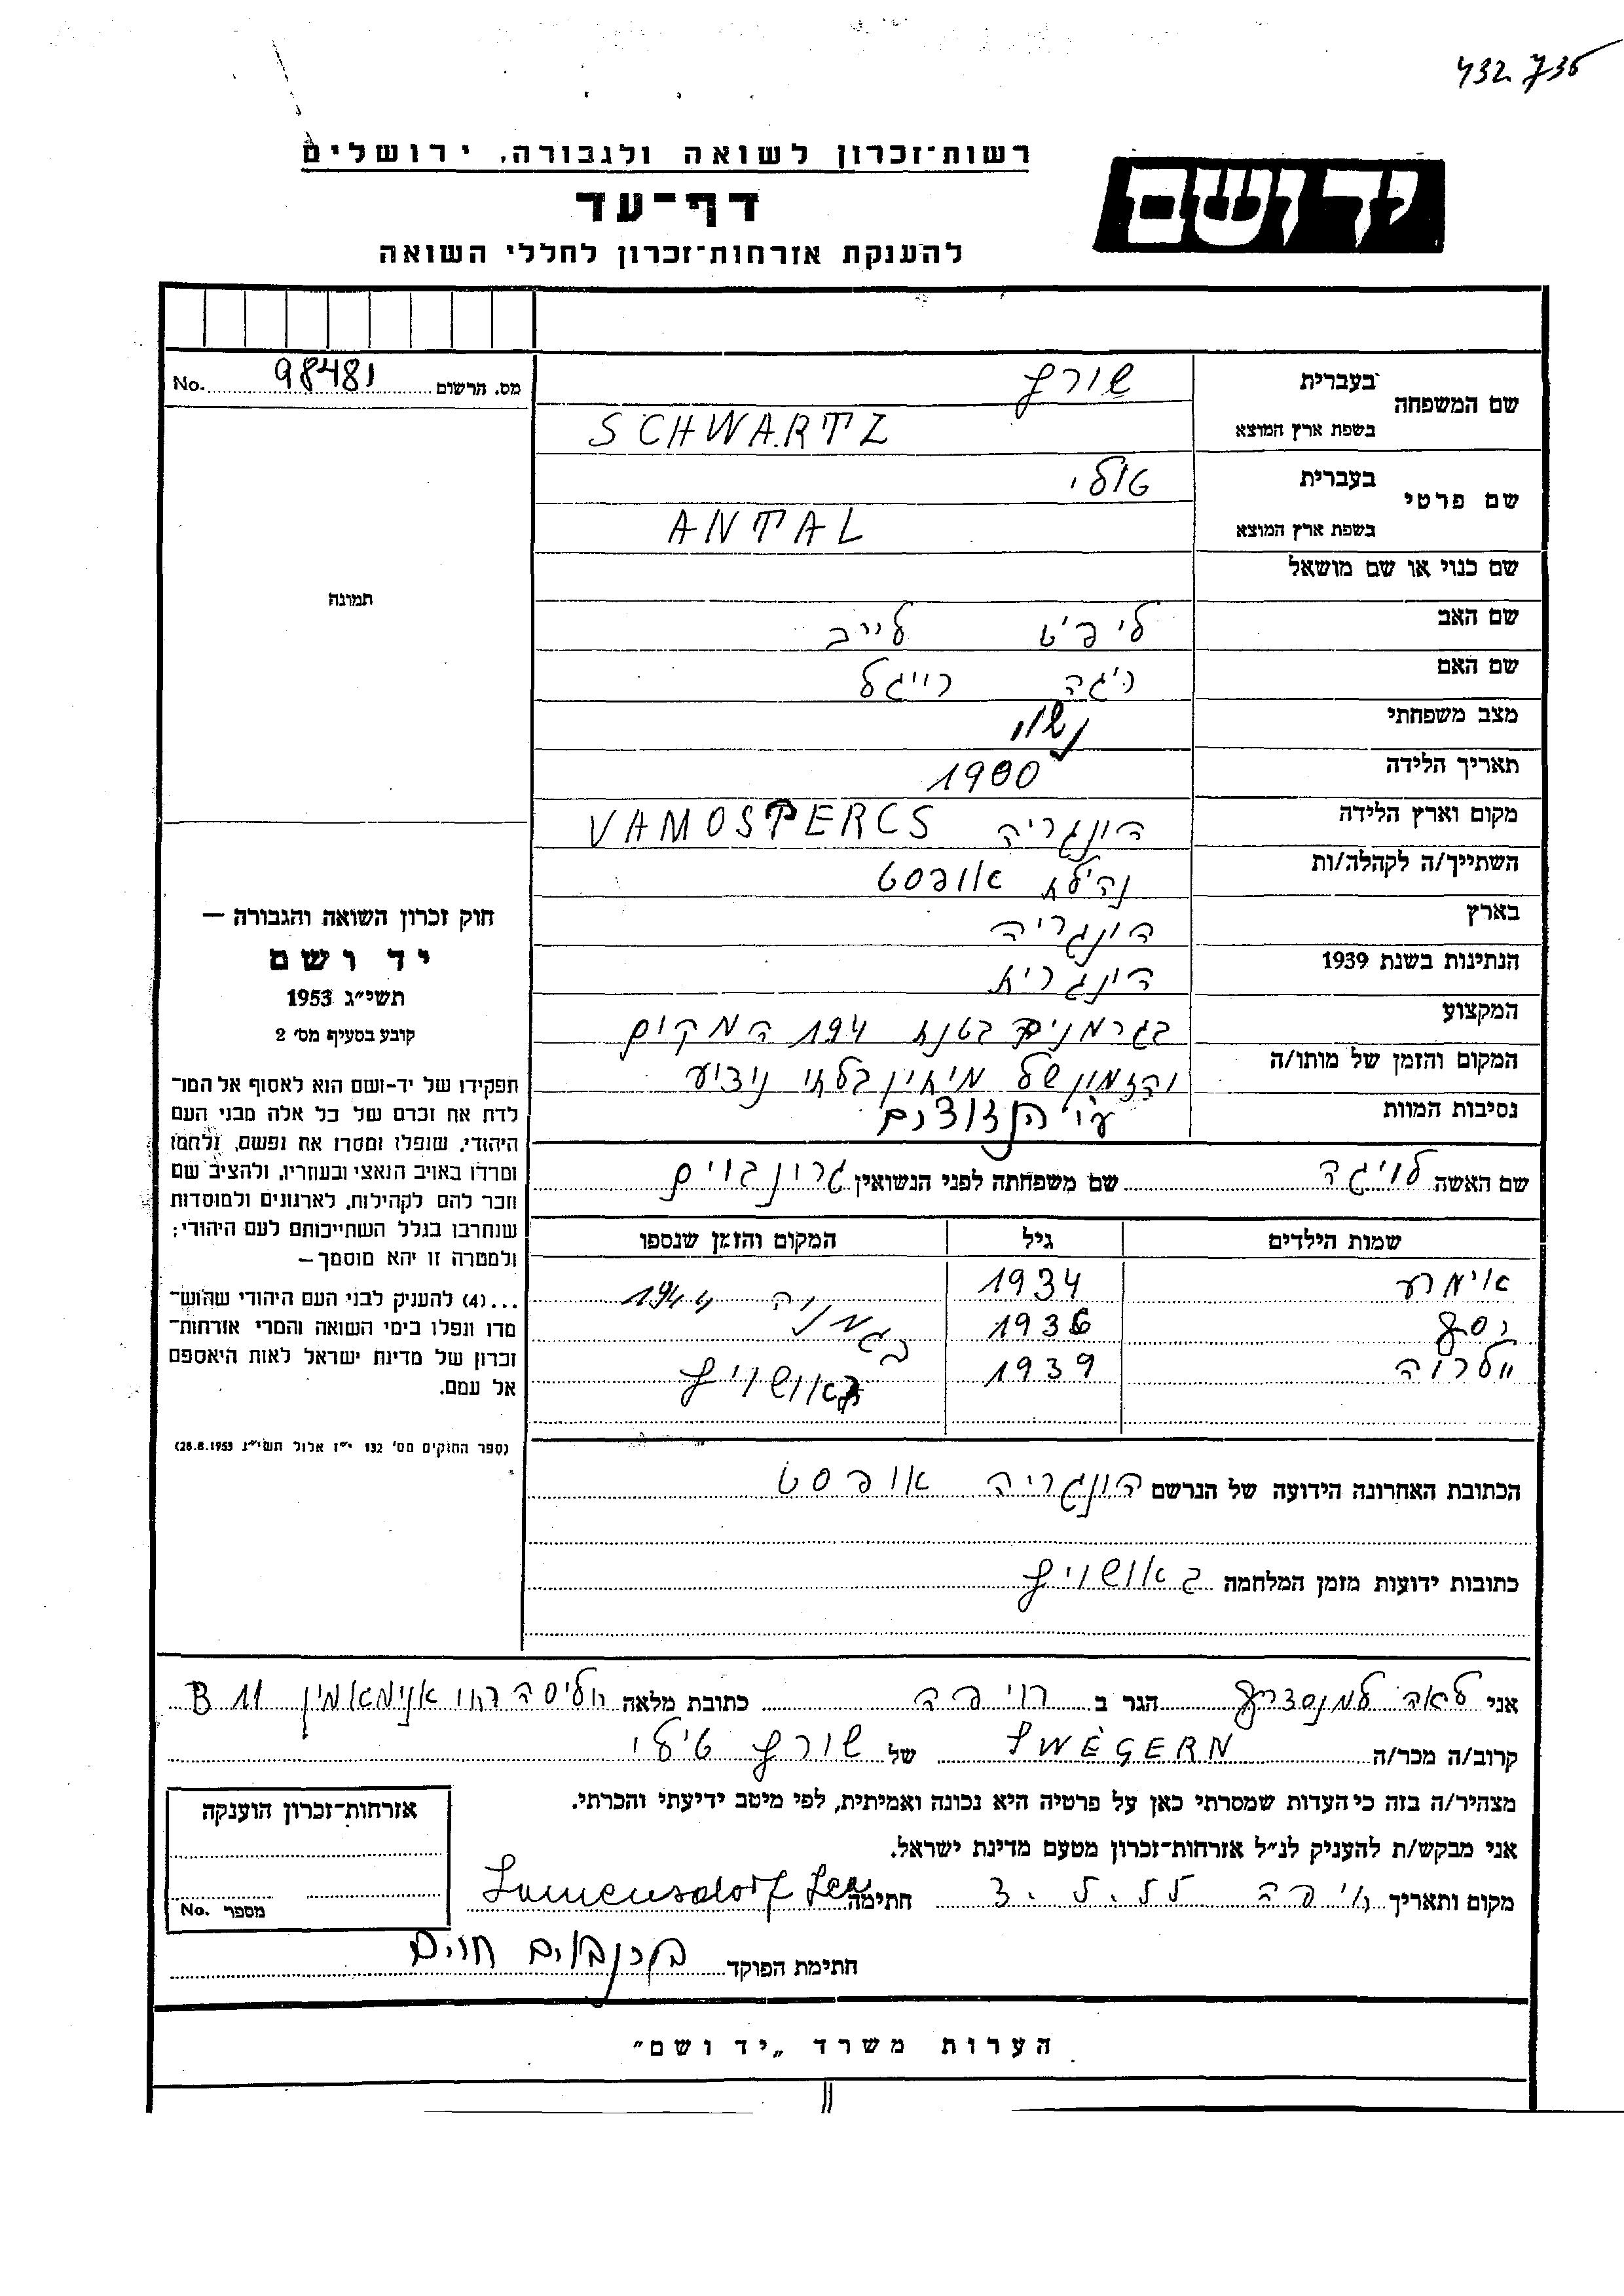 432 735
רשות־זכרון לשואה ולגבורה, ירושלים
יד ושם
דף־עד
להענקת אזרחות־זכרון לחללי השואה
מס. הרשום 98481 No.
שם המשפחה
בעברית שורץ
בשפת ארץ המוצא SCHWARTZ
שם פרטי
בעברית טולי
בשפת ארץ המוצא ANTAL
שם כנוי או שם מושאל
שם האב ליפוט לייב
שם האם רגה רייגל
מצב משפחתי נשוי
תאריך הלידה 1900
מקום וארץ הלידה הונגריה VAMOSPERCS
השתייך/ה לקהלה/ות אופסט
בארץ הונגריה
הנתינות בשנת 1939 הונגרית
המקצוע
המקום והזמן של מותו/ה
נסיבות המוות
194 המקום
והזמן של
ע"י הנאצים
תמונה
חוק זכרון השואה והגבורה —
יד ושם
תשי״ג 1953
קובע בסעיף מס׳ 2
תפקידו של יד-ושם הוא לאסוף אל המו־
לדת את זכרם של כל אלה מבני העם
היהודי, שנפלו ומסרו את נפשם, נלחמו
ומרדו באויב הנאצי ובעוזריו, ולהציב שם
וזכר להם לקהילות, לארגונים ולמוסדות
שנחרבו בגלל השתייכותם לעם היהודי;
ולמטרה זו יהא מוסמך —
...(4) להעניק לבני העם היהודי שהוש־
מדו ונפלו בימי השואה והמרי אזרחות־
זכרון של מדינת ישראל לאות היאספם
אל עמם.
(ספר החוקים מס׳ 132 י״ז אלול תשי״ג 28.8.1953)
שם האשה שם משפחתה לפני הנשואין גרונבוים
שמות הילדים גיל המקום והזמן שנספו
1934 1944
1936
1939 באושויץ
הכתובת האחרונה הידועה של הנרשם הונגריה אופסט
כתובות ידועות מזמן המלחמה באושויץ
אני לאה הגר ב חיפה כתובת מלאה 11 B
קרוב/ה מכר/ה SWÉGERN של שורץ טולי
מצהיר/ה בזה כי העדות שמסרתי כאן על פרטיה היא נכונה ואמיתית, לפי מיטב ידיעתי והכרתי.
אני מבקש/ת להעניק לנ״ל אזרחות־זכרון מטעם מדינת ישראל.
מקום ותאריך חיפה חתימה Lamensdorf Lea
חתימת הפוקד חיים
אזרחות־זכרון הוענקה
מספר No.
הערות משרד „יד ושם״